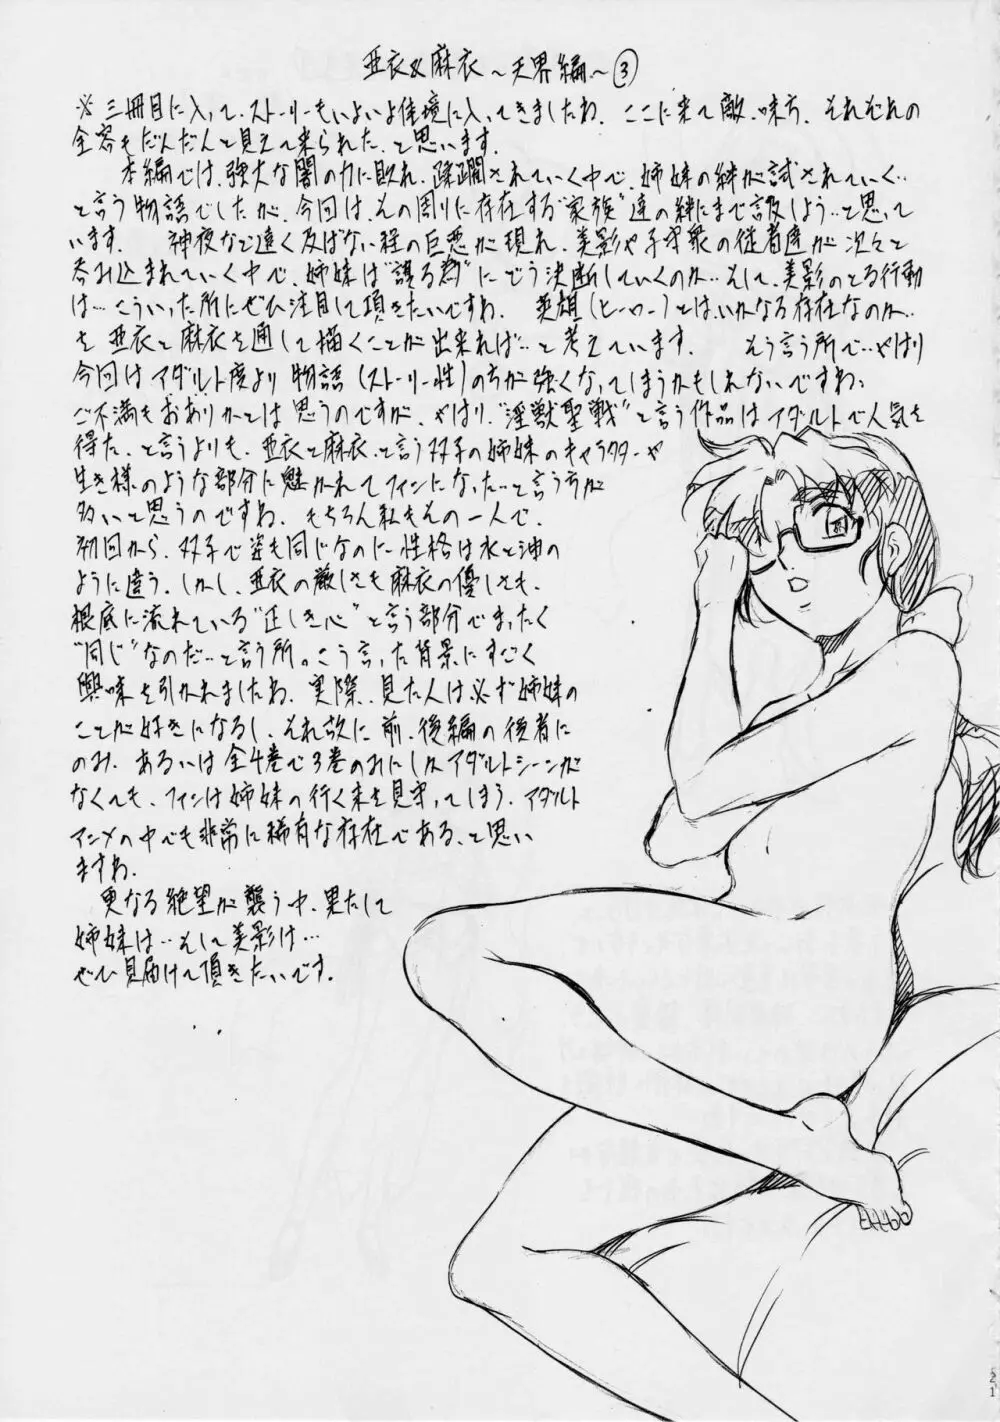 亜衣&麻衣～天界編～③
※三冊目に入って、ストーリーもいよいよ佳境に入ってきましたね。ここに来て敵、味方、それぞれの
全容もだんだんと見えて来られた、と思います。
本編では、強大な闇の力に敗れ、蹂躙されていく中で、姉妹の絆が試されていく‥
と言う物語でしたが、今回は、その周りに存在する“家族”達の絆にまで言及しよう‥と思って
います。 神夜など遠く及ばない程の巨悪が現れ、美影や子守衆の従者達が次々と
呑み込まれていく中で、姉妹は“護る為”にどう決断していくのか‥そして、美影のとる行動
は‥こういった所にぜひ注目して頂きたいですね。 英雄(ヒーロー)とは、いかなる存在なのか‥
を亜衣と麻衣を通して描くことが出来れば‥と考えています。 そう言う所で‥やはり
今回はアダルト度より物語(ストーリー性)の方が強くなってしまうかもしれないですね。
ご不満もおありかとは思うのですが、やはり、“淫獣聖戦”と言う作品はアダルトで人気を
得た、と言うよりも、亜衣と麻衣、と言う双子の姉妹のキャラクターや
生き様のような部分に魅かれてファンになった‥と言う方が
多いと思うのですね。もちろん私もその一人で、
初回から、双子で姿も同じなのに性格は水と油の
ように違う。しかし、亜衣の厳しさも麻衣の優しさも、
根底に流れている“正しき心”と言う部分でまったく
“同じ”なのだ‥と言う所。こう言った背景にすごく
興味を引かれましたね。実際、見た人は必ず姉妹の
ことが好きになるし、それ故に前、後編の後者に
のみ、あるいは全4巻で3巻のみにしかアダルトシーンが
なくても、ファンは姉妹の行く末を見守ってしまう、アダルト
アニメの中でも非常に稀有な存在である、と思い
ますね。
更なる絶望が襲う中、果たして
姉妹は‥そして美影は‥
ぜひ見届けて頂きたいです。
21